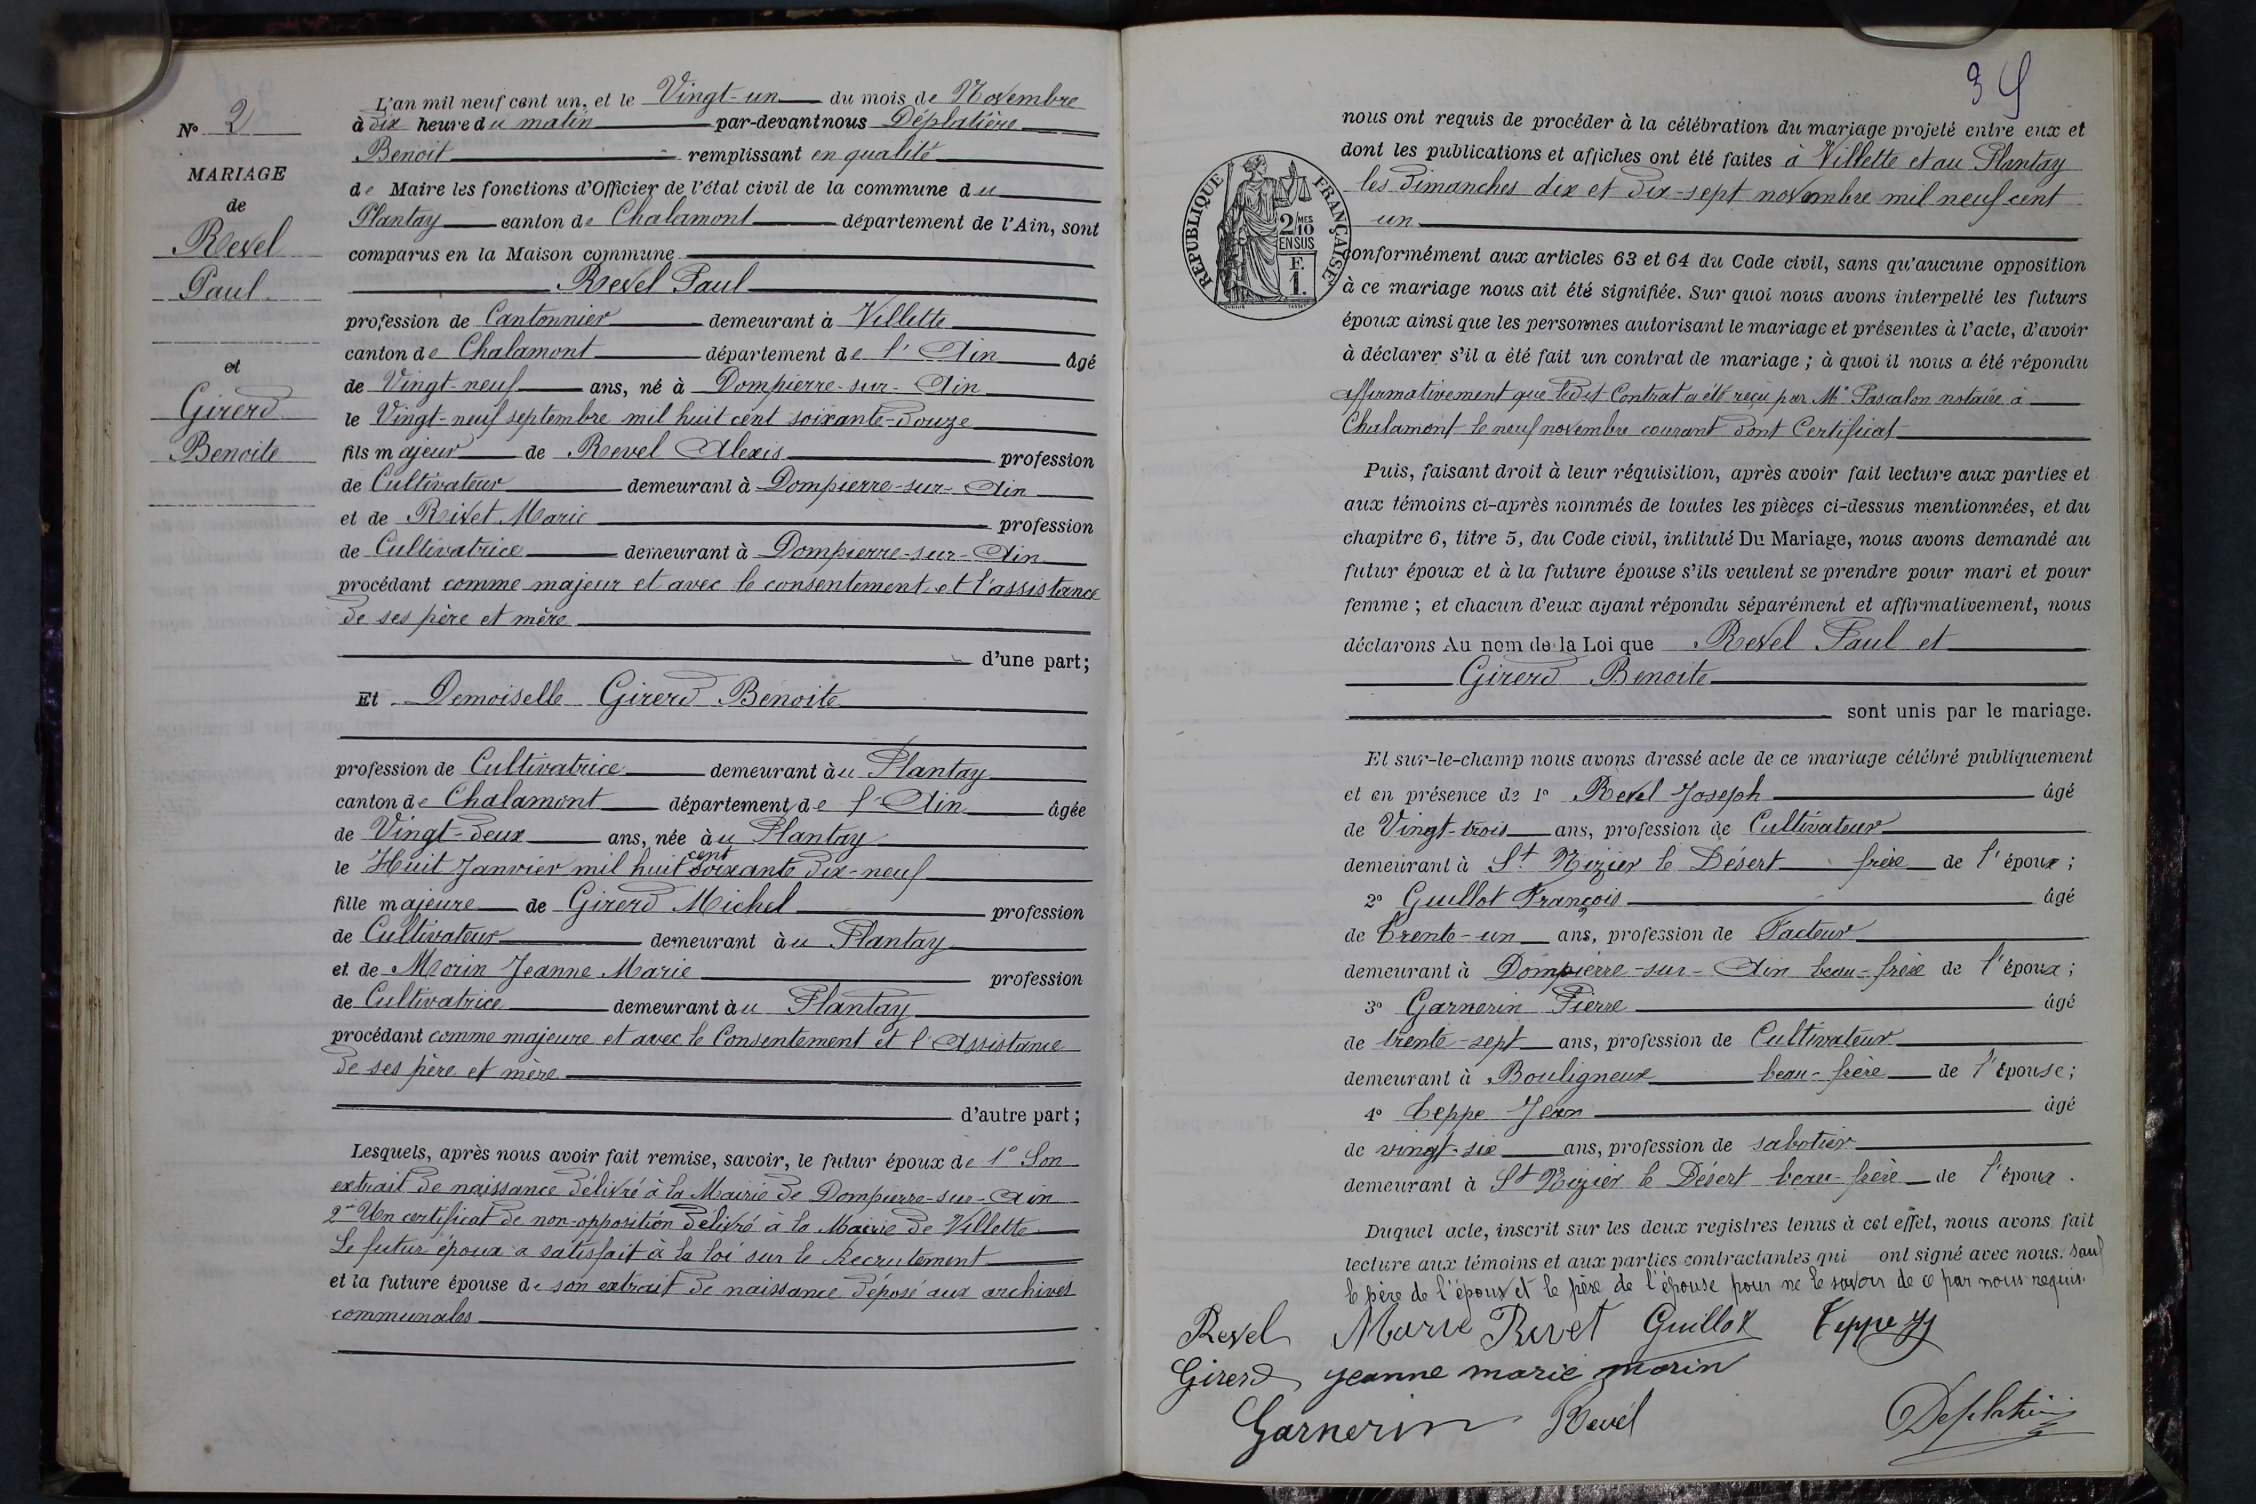 N° 2
MARIAGE
de
Revel
Paul
et
Girerd
Benoite
L'an mil neuf cent un, et le Vingt-un du mois de Novembre
à Dix heure du matin par-devant nous Déplatière
Benoit remplissant en qualité
de Maire les fonctions d'Officier de l'état civil de la commune du
Plantay canton de Chalamont département de l'Ain, sont
comparus en la Maison commune
Revel Paul
profession de Cantonnier demeurant à Villette
canton de Chalamont département de l'Ain âgé
de Vingt-neuf ans, né à Dompierre-sur-Ain
le Vingt-neuf septembre mil huit cent soixante-douze
fils majeur de Revel Alexis profession
de Cultivateur demeurant à Dompierre-sur-Ain
et de Rivet Marie profession
de Cultivatrice demeurant à Dompierre-sur-Ain
procédant comme majeur et avec le consentement et l'assistance
de ses père et mère
d'une part;
Et Demoiselle Girerd Benoite
profession de Cultivatrice demeurant àu Plantay
canton de Chalamont département de l'Ain âgée
de Vingt-deux ans, née àu Plantay
le Huit Janvier mil huit cent soixante dix-neuf
fille majeure de Girerd Michel profession
de Cultivateur demeurant àu Plantay
et de Morin Jeanne Marie profession
de Cultivatrice demeurant àu Plantay
procédant comme majeure et avec le Consentement et l'Assistance
de ses père et mère
d'autre part;
Lesquels, après nous avoir fait remise, savoir, le futur époux de 1° Son
extrait de naissance délivré à la Mairie de Dompierre-sur-Ain
2° Un certificat de non-opposition délivré à la Mairie de Villette
Le futur époux a satisfait à la loi sur le Recrutement
et la future épouse de son extrait de naissance déposé aux archives
communales
39
RÉPUBLIQUE FRANÇAISE
2/10 MES
EN SUS
F.
1.
nous ont requis de procéder à la célébration du mariage projeté entre eux et
dont les publications et affiches ont été faites à Villette et au Plantay
les Dimanches dix et dix-sept novembre mil neuf cent
un
conformément aux articles 63 et 64 du Code civil, sans qu'aucune opposition
à ce mariage nous ait été signifiée. Sur quoi nous avons interpellé les futurs
époux ainsi que les personnes autorisant le mariage et présentes à l'acte, d'avoir
à déclarer s'il a été fait un contrat de mariage; à quoi il nous a été répondu
affirmativement que ledit Contrat a été reçu par Me Pascalon notaire à
Chalamont le neuf novembre courant dont Certificat
Puis, faisant droit à leur réquisition, après avoir fait lecture aux parties et
aux témoins ci-après nommés de toutes les pièces ci-dessus mentionnées, et du
chapitre 6, titre 5, du Code civil, intitulé Du Mariage, nous avons demandé au
futur époux et à la future épouse s'ils veulent se prendre pour mari et pour
femme; et chacun d'eux ayant répondu séparément et affirmativement, nous
déclarons Au nom de la Loi que Revel Paul et
Girerd Benoite
sont unis par le mariage.
Et sur-le-champ nous avons dressé acte de ce mariage célébré publiquement
et en présence de 1° Revel Joseph âgé
de Vingt-trois ans, profession de Cultivateur
demeurant à St Nizier le Désert frère de l'époux;
2° Guillot François âgé
de Trente-un ans, profession de Facteur
demeurant à Dompierre-sur-Ain beau-frère de l'époux;
3° Garnerin Pierre âgé
de trente-sept ans, profession de Cultivateur
demeurant à Bouligneux beau-frère de l'épouse;
4° Teppe Jean âgé
de vingt-six ans, profession de sabotier
demeurant à St Nizier le Désert beau-frère de l'époux.
Duquel acte, inscrit sur les deux registres tenus à cet effet, nous avons fait
lecture aux témoins et aux parties contractantes qui ont signé avec nous. sauf
le père de l'époux et le père de l'épouse pour ne le savoir de ce par nous requis.
Revel Marie Rivet Guillot Teppe J
Girerd jeanne marie morin
Garnerin Revel Deplatière